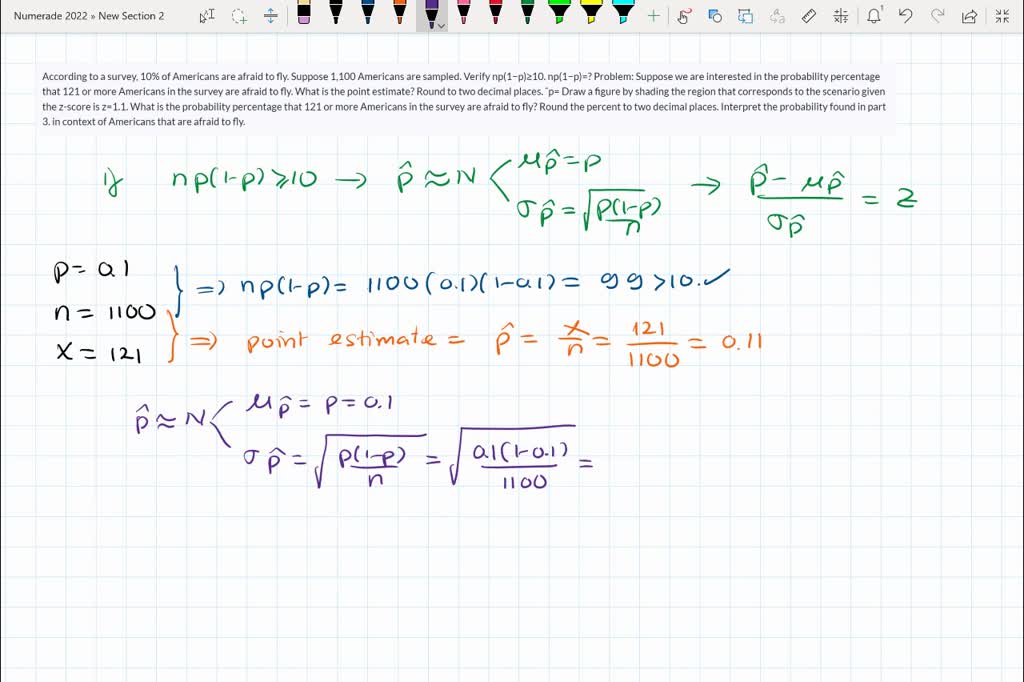 Numerade 2022 » New Section 2
According to a survey, 10% of Americans are afraid to fly. Suppose 1,100 Americans are sampled. Verify np(1−p)≥10. np(1−p)=? Problem: Suppose we are interested in the probability percentage
that 121 or more Americans in the survey are afraid to fly. What is the point estimate? Round to two decimal places. ˆp= Draw a figure by shading the region that corresponds to the scenario given
the z-score is z=1.1. What is the probability percentage that 121 or more Americans in the survey are afraid to fly? Round the percent to two decimal places. Interpret the probability found in part
3. in context of Americans that are afraid to fly.
1) np(1-p) ≥ 10 → p̂ ≈ N < μp̂ = p σp̂ = √(p(1-p)/n) → (p̂ - μp̂)/σp̂ = z
p = 0.1
n = 1100
x = 121
} => np(1-p) = 1100(0.1)(1-0.1) = 99 > 10. ✓
} => point estimate = p̂ = x/n = 121/1100 = 0.11
p̂ ≈ N < μp̂ = p = 0.1
σp̂ = √(p(1-p)/n) = √(0.1(1-0.1)/1100) =